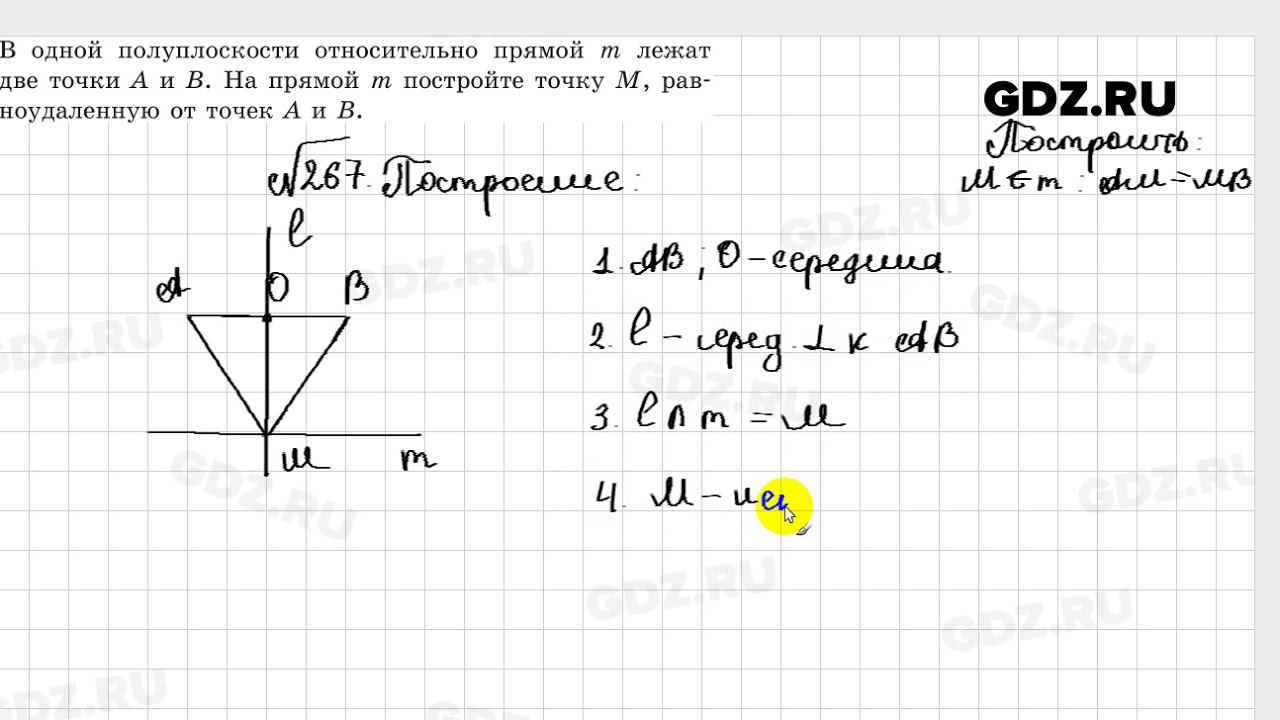 В одной полуплоскости относительно прямой m лежат
две точки A и B. На прямой m постройте точку M, рав-
ноудаленную от точек A и B.
GDZ.RU
Построить:
M ∈ m : AM = MB
√267. Построение:
l
A O B
M m
1. AB ; O – середина.
2. l – серед. ⊥ к AB
3. l ∩ m = M
4. M –
GDZ.RU
GDZ.RU
GDZ.RU
GDZ.RU
GDZ.RU
GDZ.RU
GDZ.RU
GDZ.RU
GDZ.RU
GDZ.RU
GDZ.RU